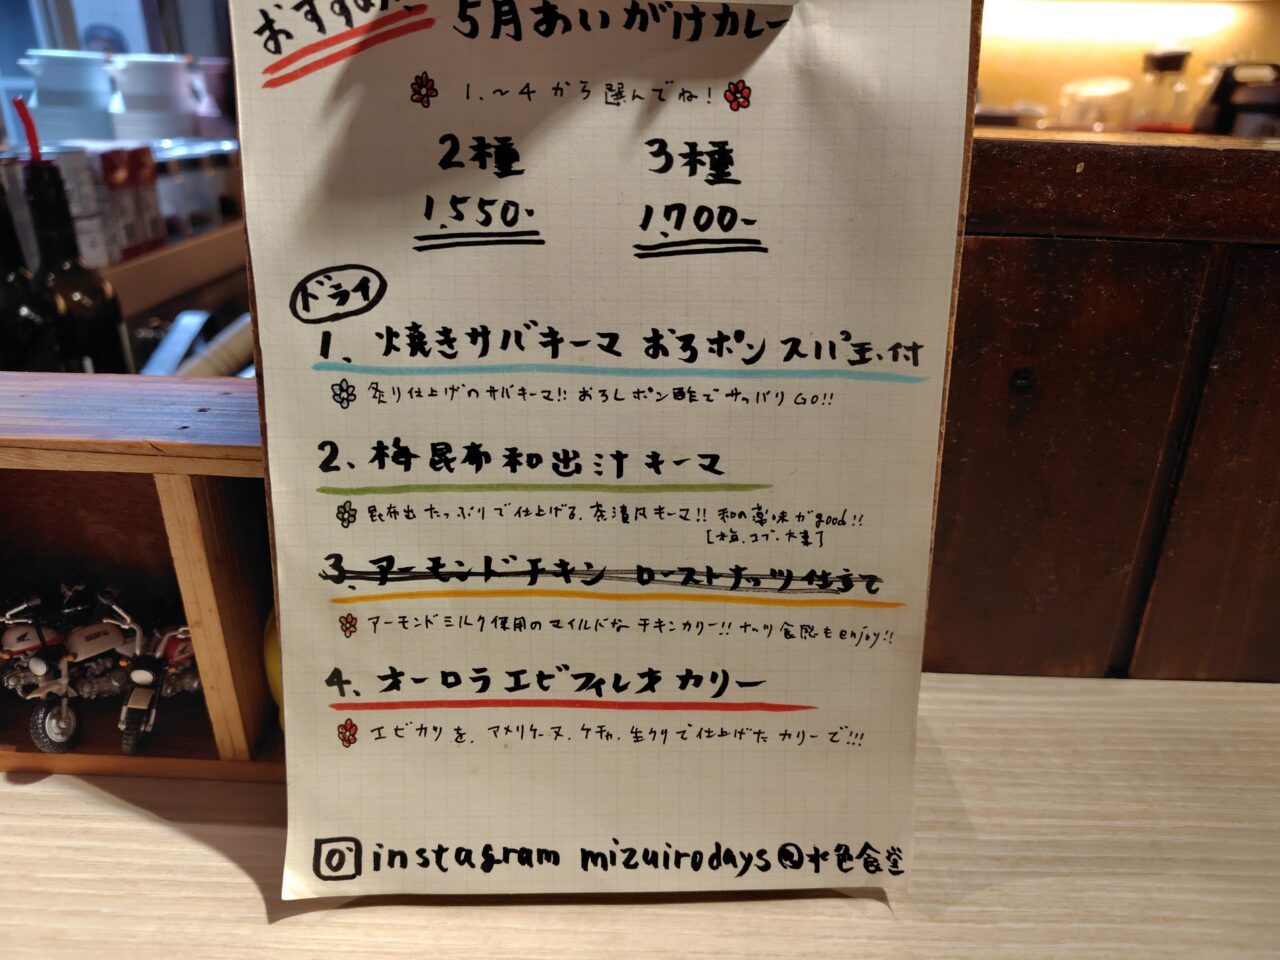 おすすめ!
5月あいがけカレー
1.~4から選んでね!
2種 3種
1,550- 1,700-
ドライ
1、焼きサバキーマ おろポン スパ玉付
炙り仕上げのサバキーマ!! おろしポン酢でサッパリGO!!
2、梅昆布和出汁キーマ
昆布出たっぷりで仕上げる、茶漬風キーマ!! 和の薬味がgood!!
[梅、コブ、大葉]
3、アーモンドチキン ローストナッツ仕立て
アーモンドミルク使用のマイルドなチキンカリー!! ナッツ食感もenjoy!!
4、オーロラエビフィレオカリー
エビカツを、アメリケーヌ、ケチャ、生クリで仕上げたカリーで!!!
instagram mizuirodays@水色食堂